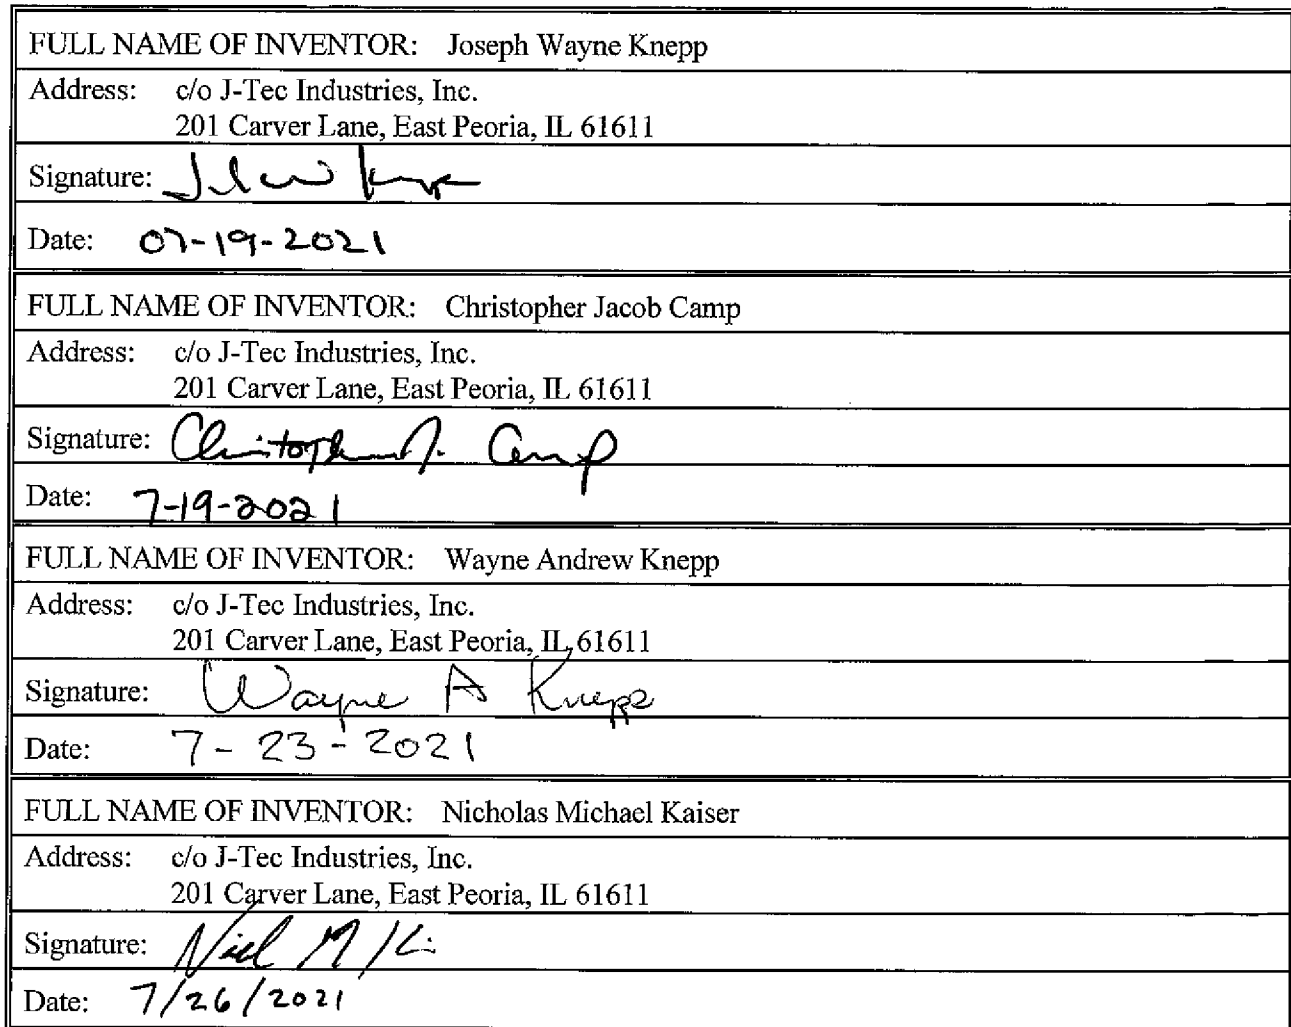 FULL NAME OF INVENTOR: Joseph Wayne Knepp
Address: c/o J-Tec Industries, Inc.
201 Carver Lane, East Peoria, IL 61611
Signature:
Date: 07-19-2021
FULL NAME OF INVENTOR: Christopher Jacob Camp
Address: c/o J-Tec Industries, Inc.
201 Carver Lane, East Peoria, IL 61611
Signature: Christopher J. Camp
Date: 7-19-2021
FULL NAME OF INVENTOR: Wayne Andrew Knepp
Address: c/o J-Tec Industries, Inc.
201 Carver Lane, East Peoria, IL 61611
Signature: Wayne A Knepp
Date: 7-23-2021
FULL NAME OF INVENTOR: Nicholas Michael Kaiser
Address: c/o J-Tec Industries, Inc.
201 Carver Lane, East Peoria, IL 61611
Signature:
Date: 7/26/2021